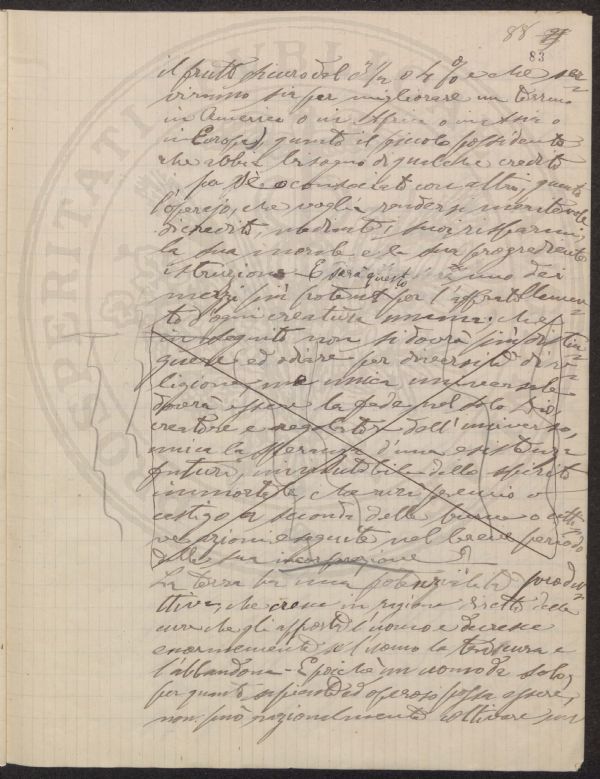 88
83
il frutto sicuro del 3 1/2 o 4 % e che ser
viranno sia per migliorare un terreno
in America o in Africa o in Asia o
in Europa), quanto il piccolo possidente
che abbia bisogno di qualche credito
per sè o consociato con altri, quanto
l'operajo, che voglia rendersi meritevole
di credito mediante i suoi risparmi,
la sua morale e la sua progrediente
istruzione. E sarà questo uno dei
mezzi più potenti per l'affratellamen
to d'ogni creatura umana; che
in seguito non si dovrà più distin
guere ed odiare per diversità di re
ligione, ma unica universale
dovrà essere la fede nel solo Dio
creatore e regolatore dell'universo,
unica la speranza d'una esistenza
futura, immutabile dello spirito
immortale, che avrà premio o
castigo a seconda delle buone o catti
ve azioni eseguite nel breve periodo
della sua incorporazione
La terra ha una potenzialità produt
ttiva, che cresce in ragione diretta delle
cure che gli apporta l'uomo e decresce
enormemente se l'uomo la trascura e
l'abbandona - E poichè un uomo da solo,
per quanto sapiente ed operoso possa essere,
non può razionalmente coltivare